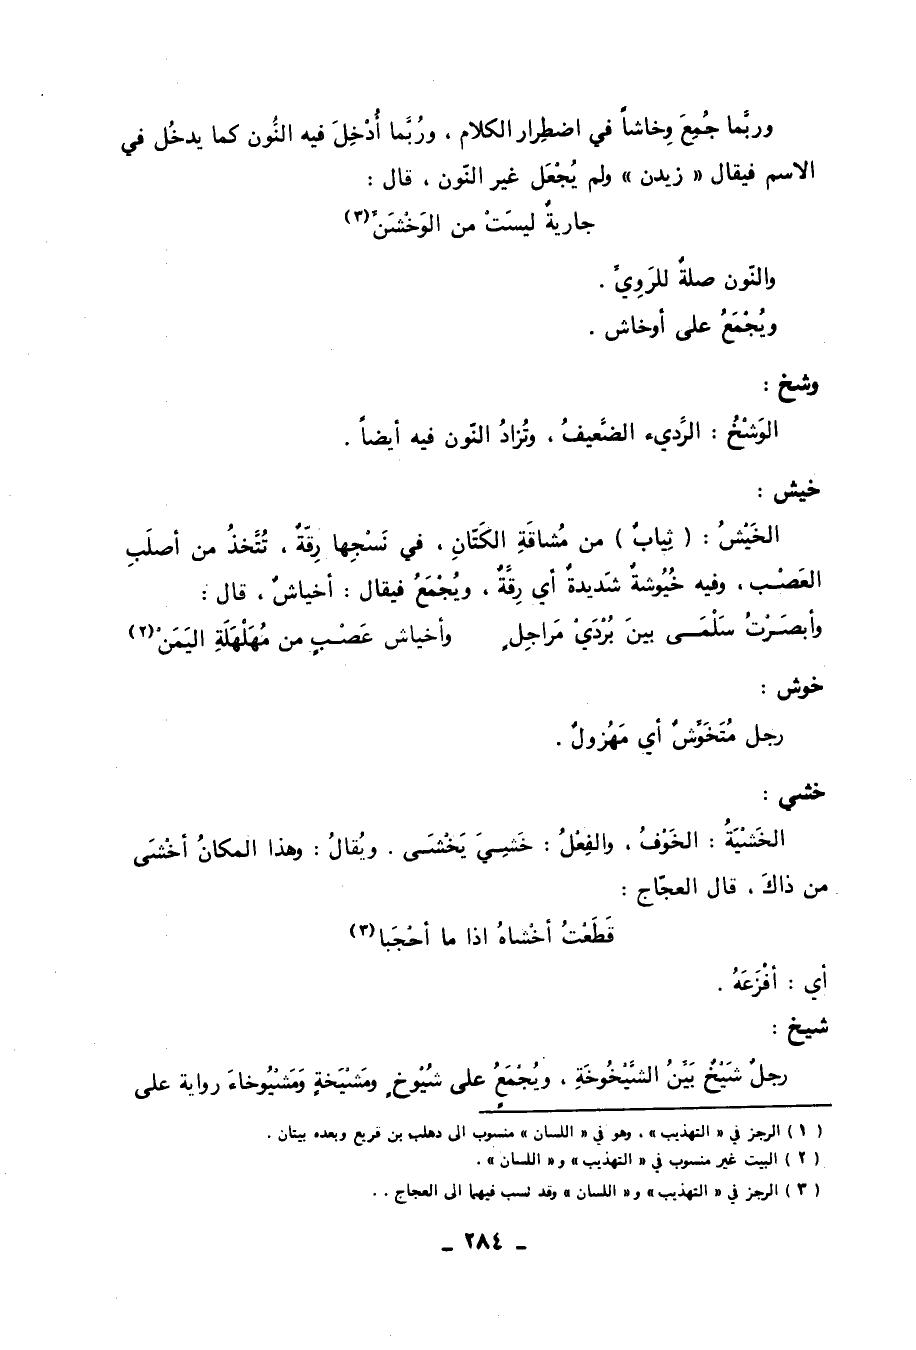 وربَّما جُمِعَ وِخاشاً في اضطِرار الكلام ، ورُبَّما أُدْخِلَ فيه النُّون كما يدخُل في
الاسم فيقال « زيدن » ولم يُجْعَل غير النّون ، قال :
جاريةٌ ليسَتْ من الوَخْشَنّ (٣)
والنّون صلةٌ للرَوِيّ .
ويُجْمَعُ على أوخاش .
وشخ :
الوَشْخُ : الرَّديء الضَّعيفُ ، وتُزادُ النّون فيه أيضاً .
خيش :
الخَيْشُ : ( ثِيابٌ ) من مُشاقَةِ الكَتّانِ ، في نَسْجِها رِقّةٌ ، تُتَّخذُ من أصلَبِ
العَصْب ، وفيه خُيُوشةٌ شَديدةٌ أي رِقَّةٌ ، ويُجْمَعُ فيقال : أخياشٌ ، قال :
وأبصَرْتُ سَلْمَى بينَ بُرْدَيْ مَراجِلٍ وأخياش عَصْبٍ من مُهَلْهَلَةِ اليَمَنْ (٢)
خوش :
رجل مُتَخَوَّشٌ أي مَهْزولٌ .
خشي :
الخَشْيَةُ : الخَوْفُ ، والفِعْلُ : خَشِيَ يَخْشَى . ويُقالُ : وهذا المكانُ أخْشَى
من ذاكَ ، قال العجّاج :
قَطَعْتُ أخْشاهُ اذا ما أحْجَبا (٣)
أي : أفْزَعَهُ .
شيخ :
رجلٌ شَيْخٌ بَيَّنُ الشَّيْخُوخَةِ ، ويُجْمَعُ على شُيُوخٍ ومَشْيَخةٍ وَمَشْيُوخاءَ رواية على
( ١ ) الرجز في « التهذيب » ، وهو في « اللسان » منسوب الى دهلب بن قريع وبعده بيتان .
( ٢ ) البيت غير منسوب في « التهذيب » و « اللسان » .
( ٣ ) الرجز في « التهذيب » و « اللسان » وقد نسب فيهما الى العجاج . .
ـ ٢٨٤ ـ